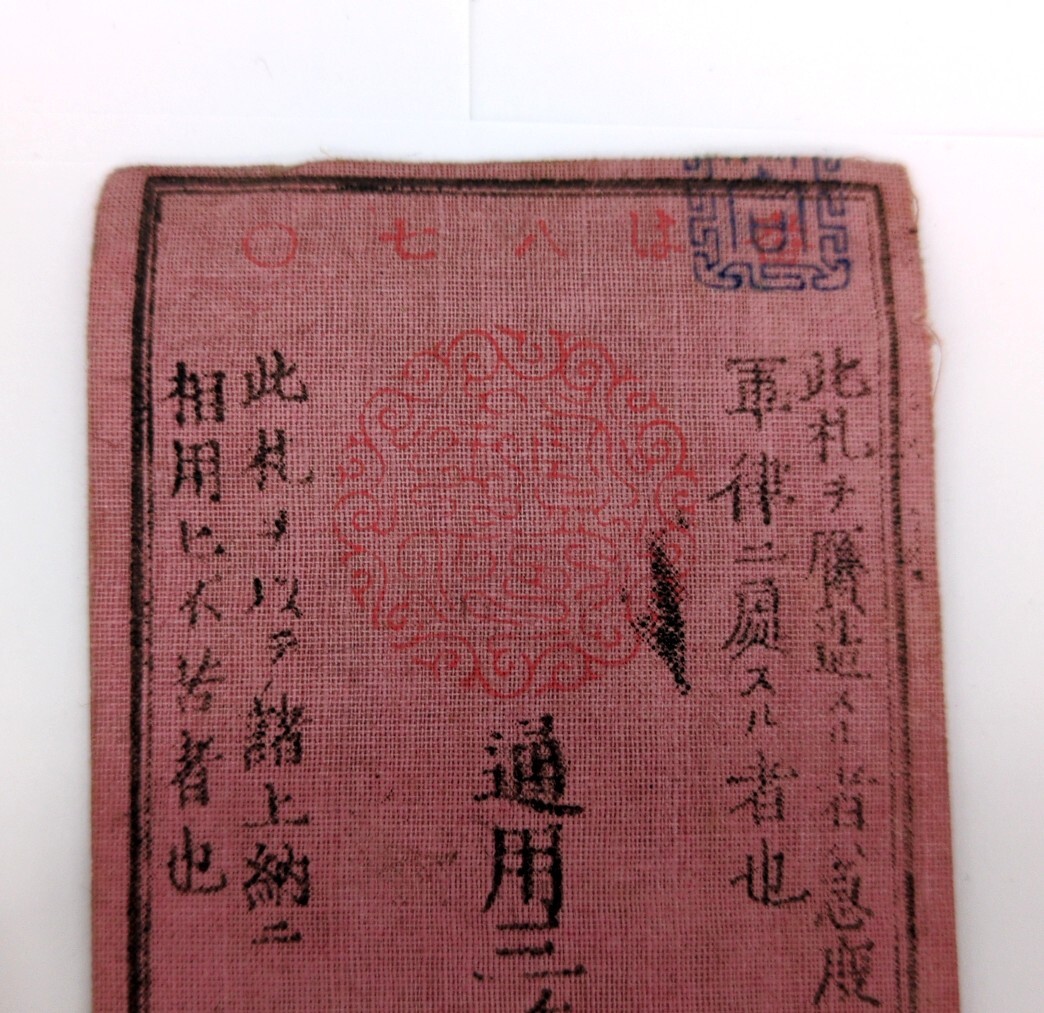 は八七〇
此札ヲ贋造スル者ハ急度
軍律ニ処スル者也
通用三
此札ヲ以テ諸上納ニ
相用ヒ不苦者也